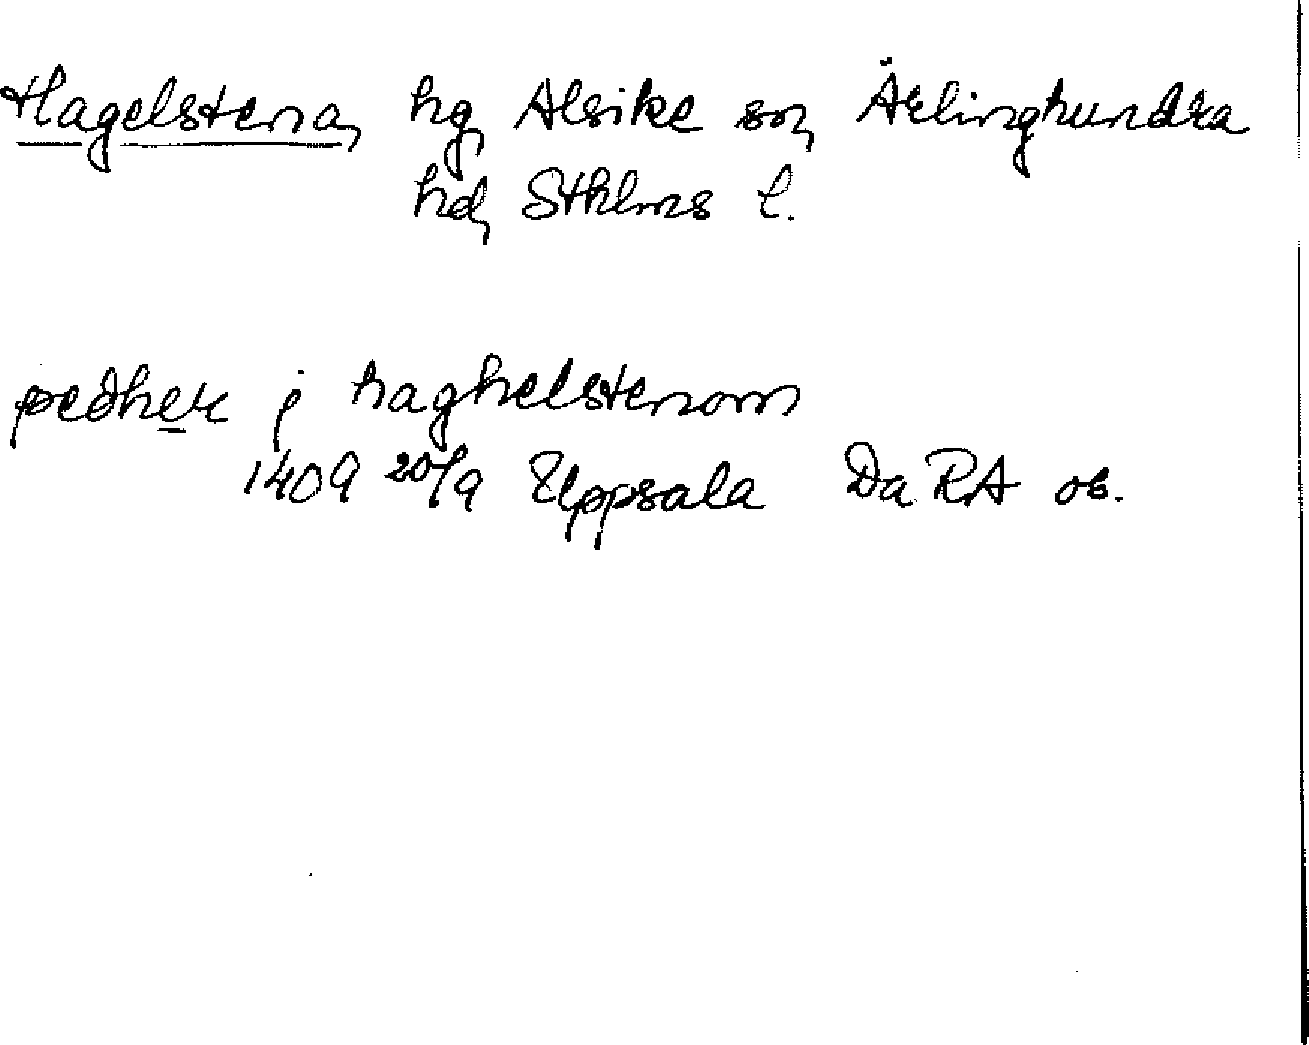 Hagelstena, hg, Alsike sn, Ärlinghundra
hd, Sthlms l.
pedher j haghelstenom
1409 20/9 Uppsala Da RA or.